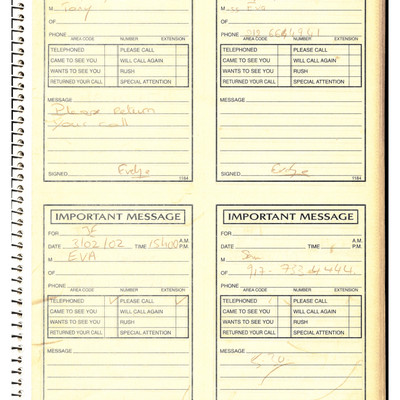 M Tony
OF
PHONE
AREA CODE NUMBER EXTENSION
TELEPHONED PLEASE CALL
CAME TO SEE YOU WILL CALL AGAIN
WANTS TO SEE YOU RUSH
RETURNED YOUR CALL SPECIAL ATTENTION
MESSAGE
Please return
your call
SIGNED
1184
M
OF
PHONE
AREA CODE NUMBER EXTENSION
TELEPHONED PLEASE CALL
CAME TO SEE YOU WILL CALL AGAIN
WANTS TO SEE YOU RUSH
RETURNED YOUR CALL SPECIAL ATTENTION
MESSAGE
SIGNED
1184
IMPORTANT MESSAGE
FOR JE
DATE 3/02/02 TIME A.M. P.M.
M EVA
OF
PHONE
AREA CODE NUMBER EXTENSION
TELEPHONED ✓ PLEASE CALL ✓
CAME TO SEE YOU WILL CALL AGAIN
WANTS TO SEE YOU RUSH
RETURNED YOUR CALL SPECIAL ATTENTION
MESSAGE
IMPORTANT MESSAGE
FOR
DATE TIME A.M. P.M.
M
OF 917-733-4444
PHONE
AREA CODE NUMBER EXTENSION
TELEPHONED PLEASE CALL
CAME TO SEE YOU WILL CALL AGAIN
WANTS TO SEE YOU RUSH
RETURNED YOUR CALL SPECIAL ATTENTION
MESSAGE